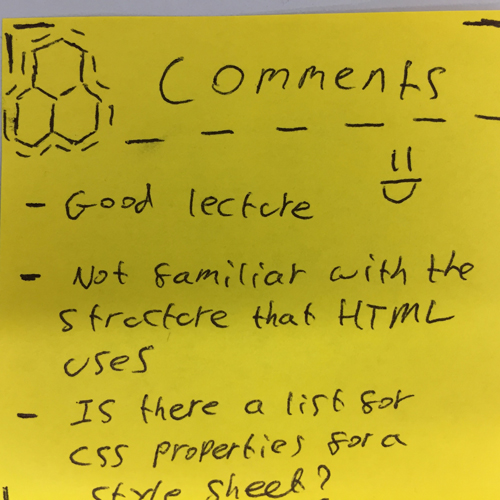 Comments
- Good lecture
- Not familiar with the
structure that HTML
uses
- Is there a list for
CSS properties for a
style sheet?